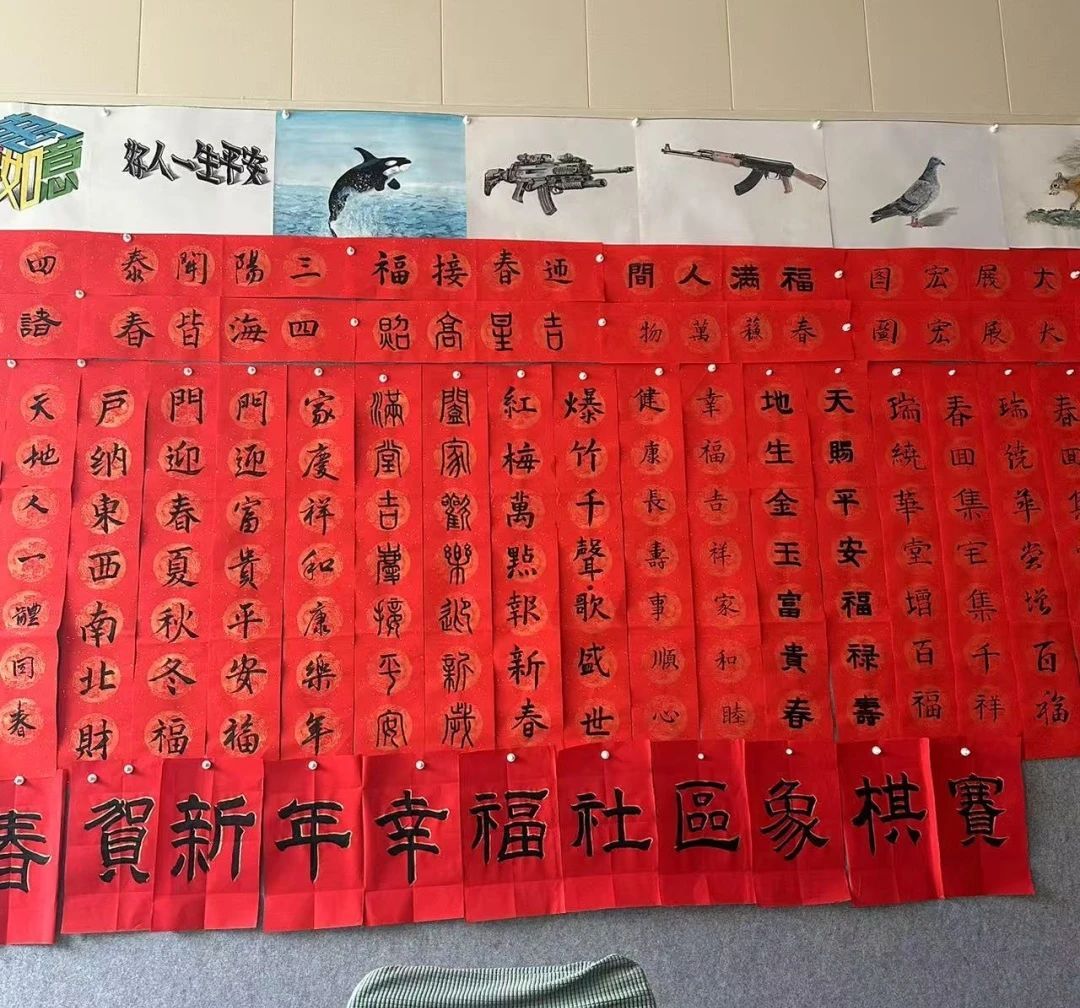 如意
好人一生平安
大展宏图
福满人間
迎春接福
三陽開泰
四
大展宏圖
春蘓萬物
吉星高炤
四海皆春
諸
瑞绕华堂增百福
春回集宅集千祥
瑞繞華堂增百福
天賜平安福禄壽
地生金玉富貴春
幸福吉祥家和睦
健康長壽事順心
爆竹千聲歌盛世
紅梅萬點報新春
閤家歡樂迎新歲
滿堂吉慶接平安
家慶祥和康樂年
門迎富貴平安福
門迎春夏秋冬福
戸纳東西南北財
天地人一體同春
春賀新年幸福社區象棋賽